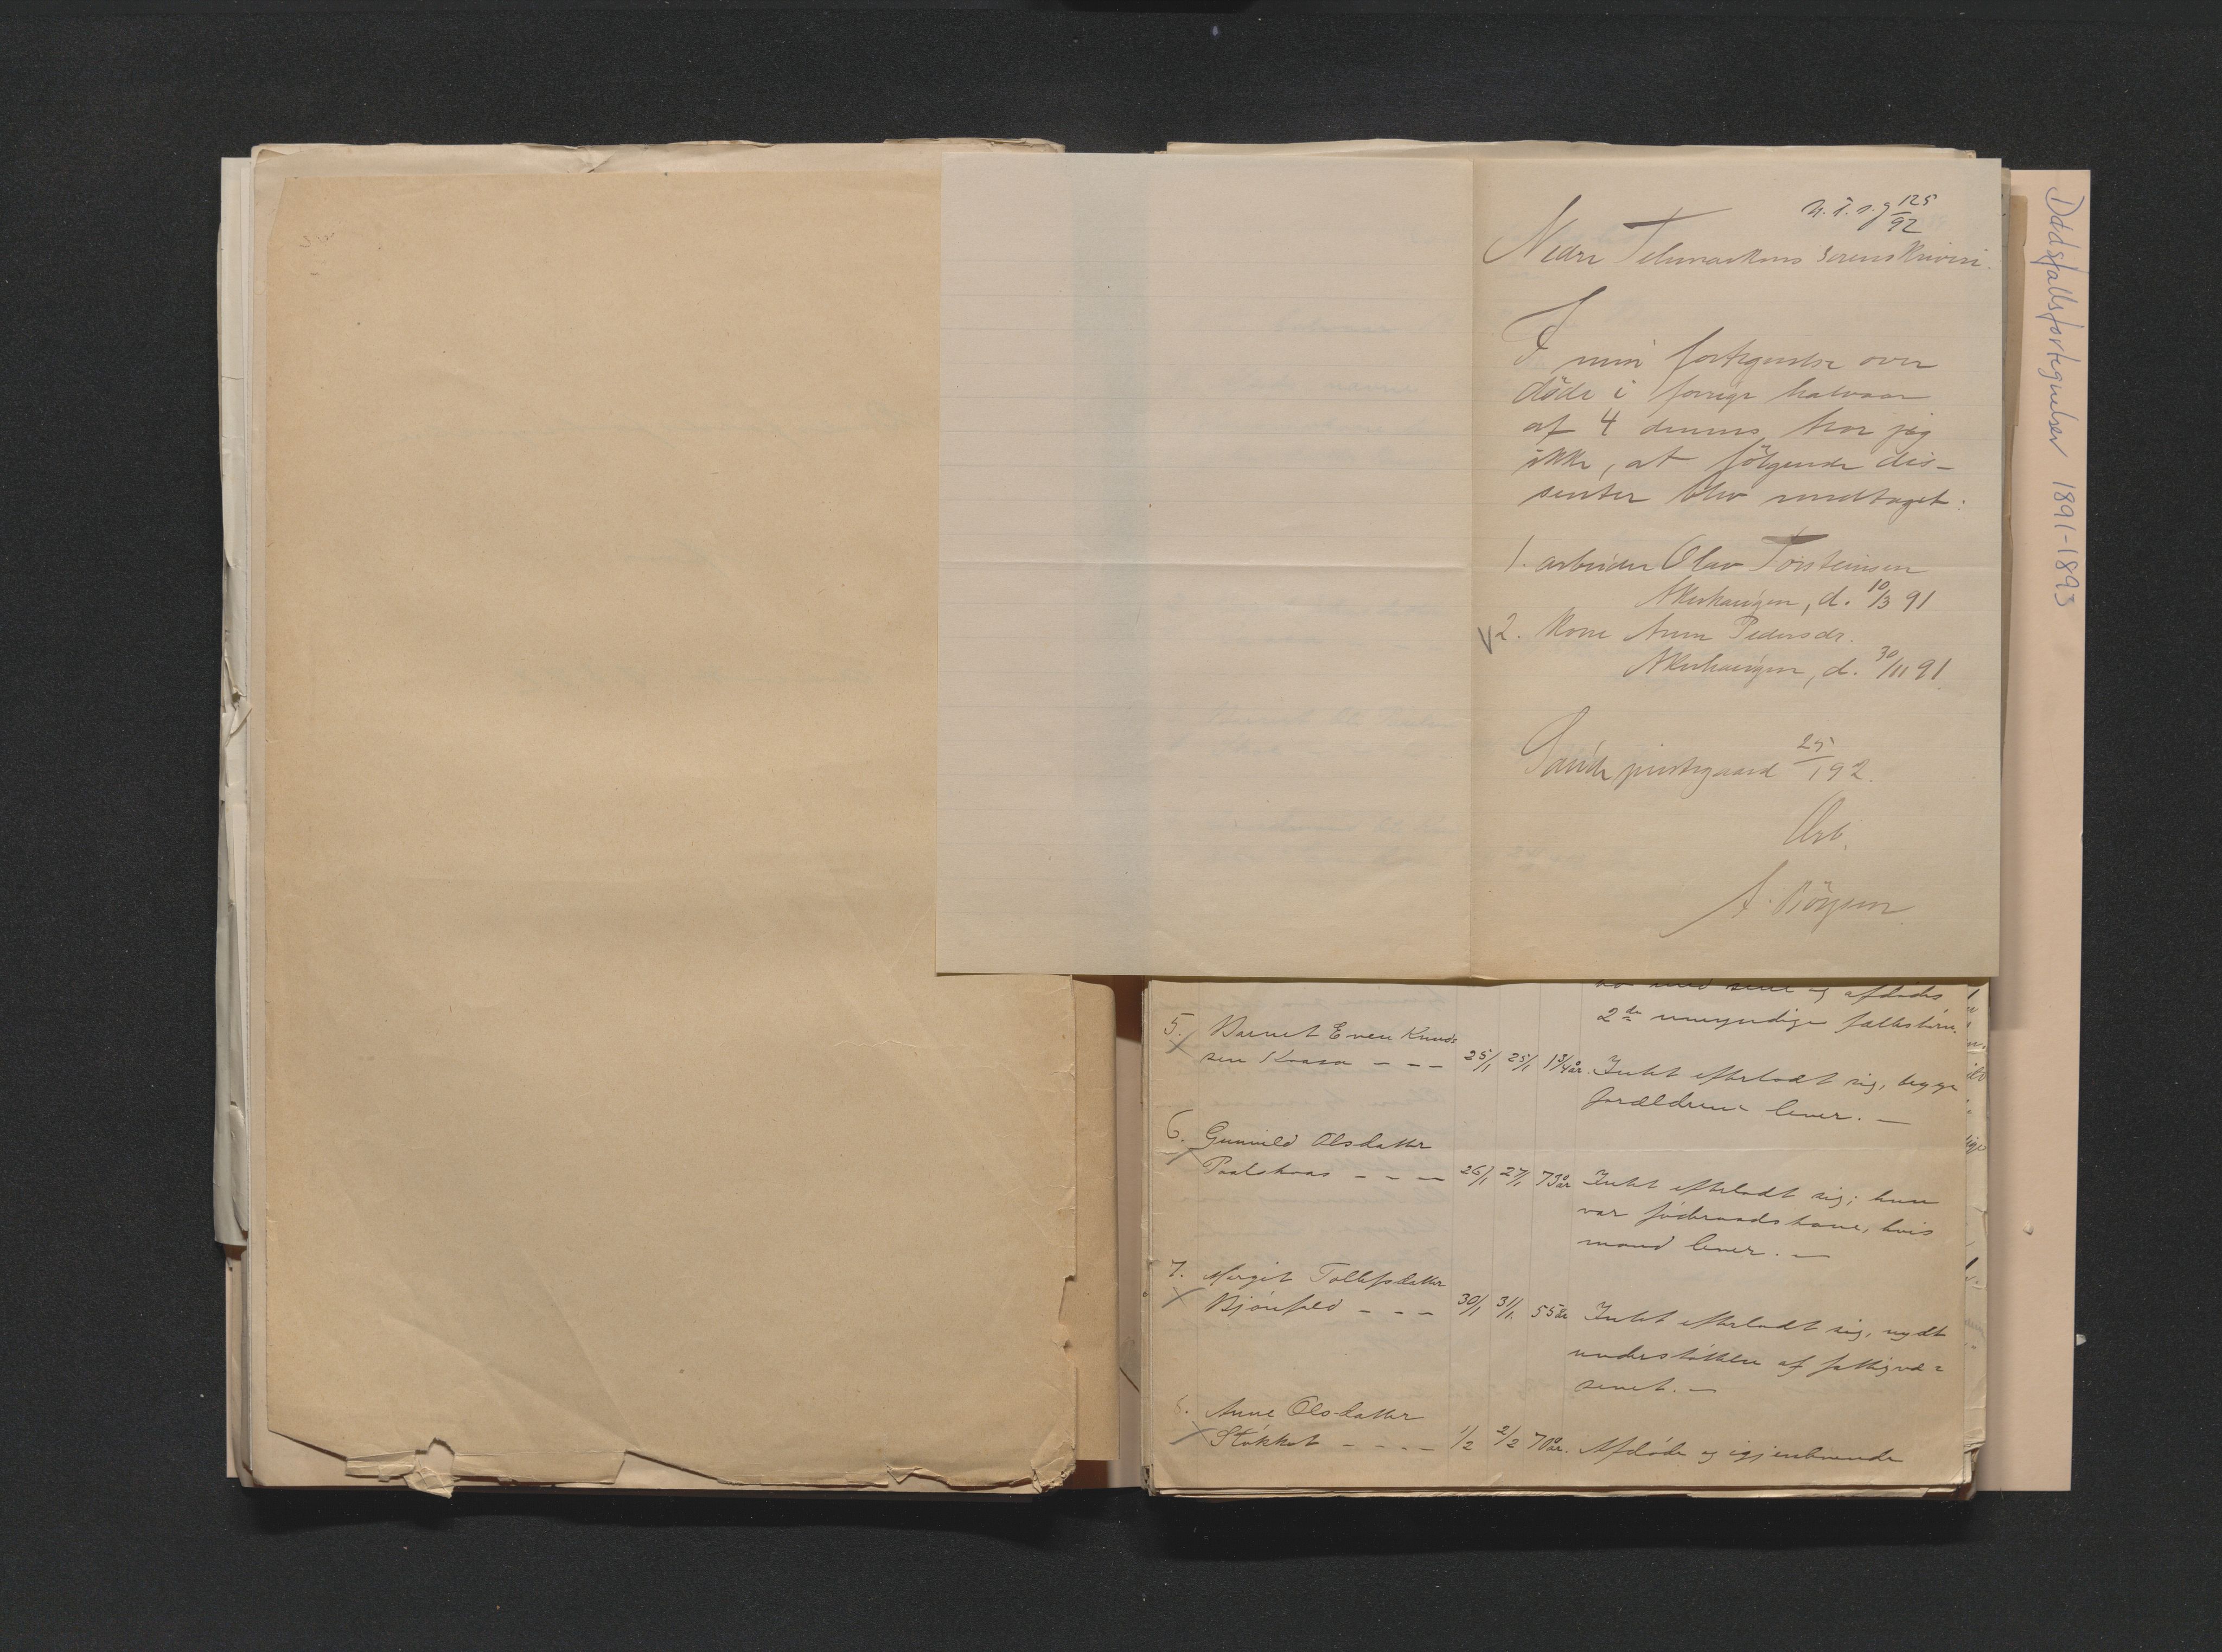 N. T. s. j 125/92
Nedre Telemarkens Sorenskriveri.
I min fortegnelse over
døde i forrige halvaar
af 4 dennes tror jeg
ikke, at følgende dis-
senter blev medtaget:
1. arbeider Olav Torsteinsen
Akerhaugen, d. 10/3 91
2. Kone Anne Pedersdr.
Akerhaugen, d. 30/11 91
Saude prestegaard 25/1 92.
Ærb.
A. Börjesen
og afdødes
2de umyndige fællesbörn.
5. Barnet Even Knud=
sen Kraasa - - - 25/1 25/1 1 3/4 år. Intet efterladt sig, begge
forældrene lever. —
6. Gunnild Olsdatter
Paalskaas - - - 26/1 27/1 73 år Intet efterladt sig; hun
var föderaadskone, hvis
mand lever. —
7. Margit Tollefsdatter
Bjönfeld - - - 30/1 31/1 55 år Intet efterladt sig, nydt
understöttelse af fattigvæ=
senet. —
8. Anne Olsdatter
Stokket - - - - 1/2 2/2 70 år. Afdöde og igjenlevende
Dødsfallsfortegnelser 1891-1893